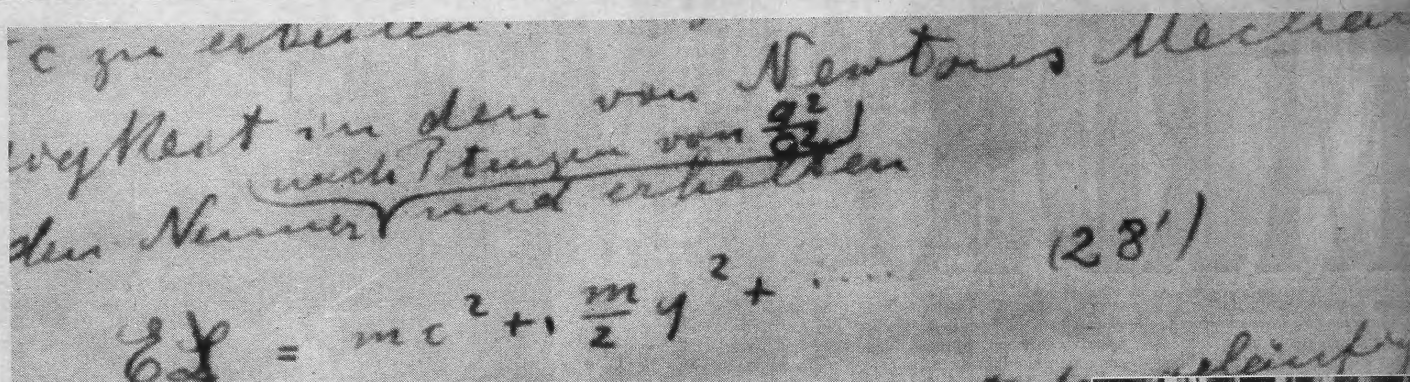 c zu
igkeit in den von Newtons Mechan
nach Potenzen von q²/c²
den Nenner und erhalten
EL = mc² + m/2 q² + ..... (28')
läufig